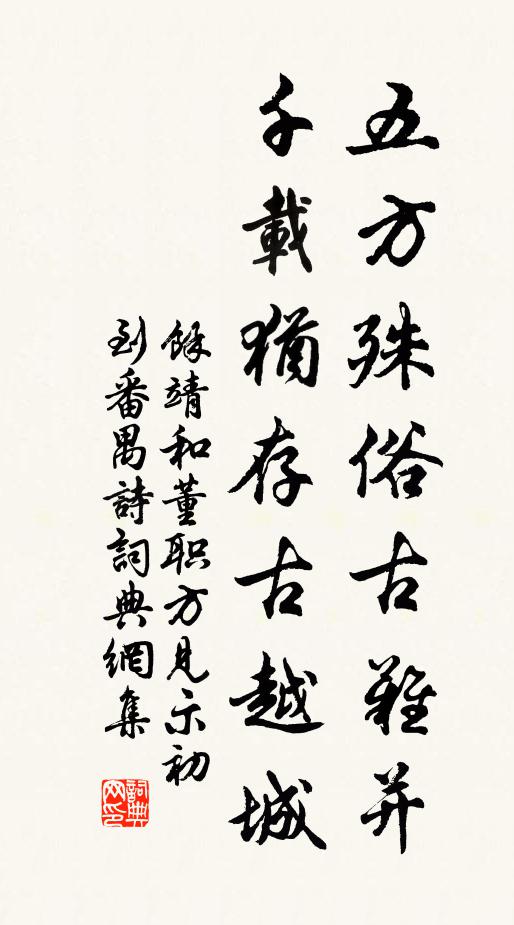 五方殊俗古難并
千載猶存古越城
餘靖和董职方見示初
到番禺詩詞典網集
詞典网印